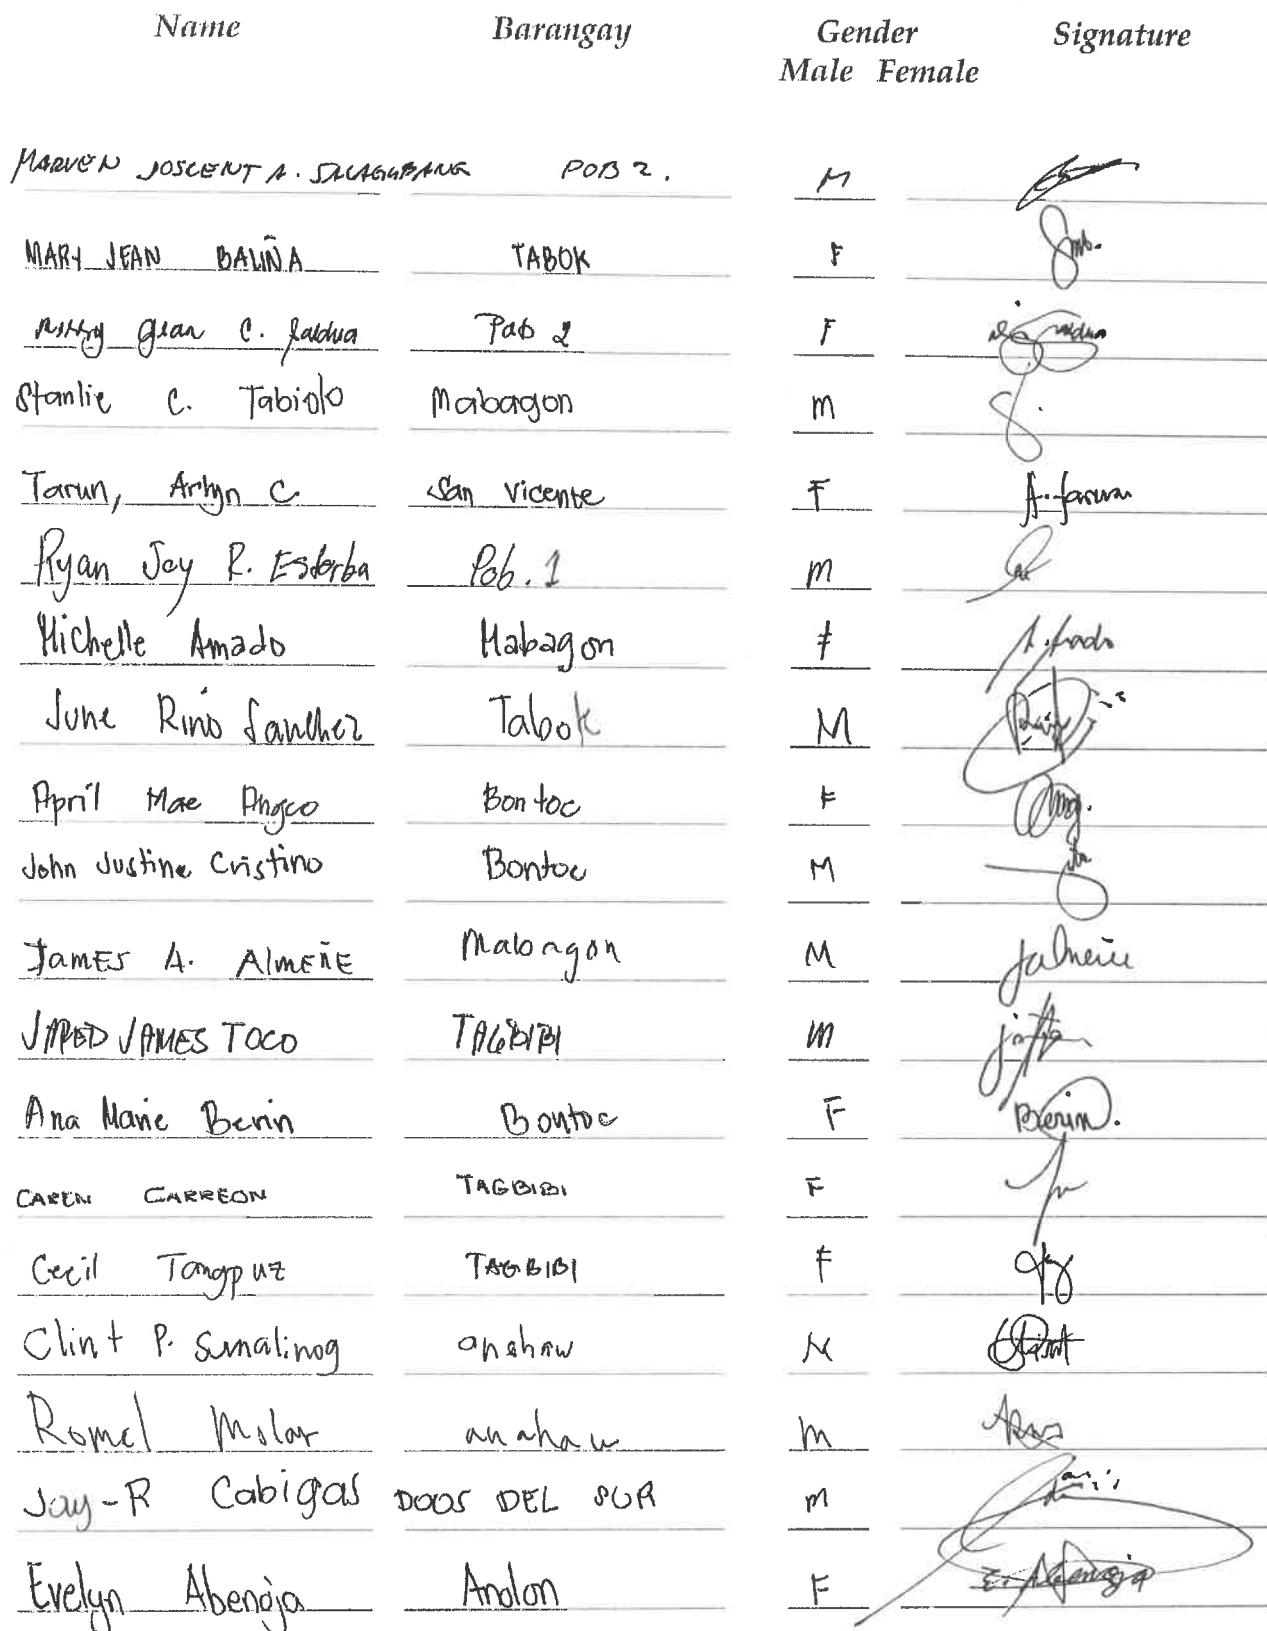 Name Barangay Gender Signature
Male Female
MARVEN JOSCENT A. SALAGUBANG POB 2. M
MARY JEAN BALIÑA TABOK F Jmb.
gean C. Pob 2 F
Stanlie C. Tabiolo Mabagon m S.
Tarun, Arlyn C. San Vicente F A. Tarun
Ryan Jay R. Estorba Pob. 1 m
Michelle Amado Mabagon F
June Rino Sanchez Tabok M
April Mae Angco Bontoc F Ang.
John Justine Cristino Bontoc M
JAMES A. ALMEÑE Mabagon M jalmeñe
JARED JAMES TOCO TAGBIBI m
Ana Marie Berin Bontoc F Berin.
CAREN CARREON TAGBIBI F
Cecil Tangpuz TAGBIBI F
Clint P. Sumalinog anahaw M
Romel Molar anahaw m
Jay-R Cabigas DOOS DEL SUR m
Evelyn Abenoja Anolon F E. Abenoja